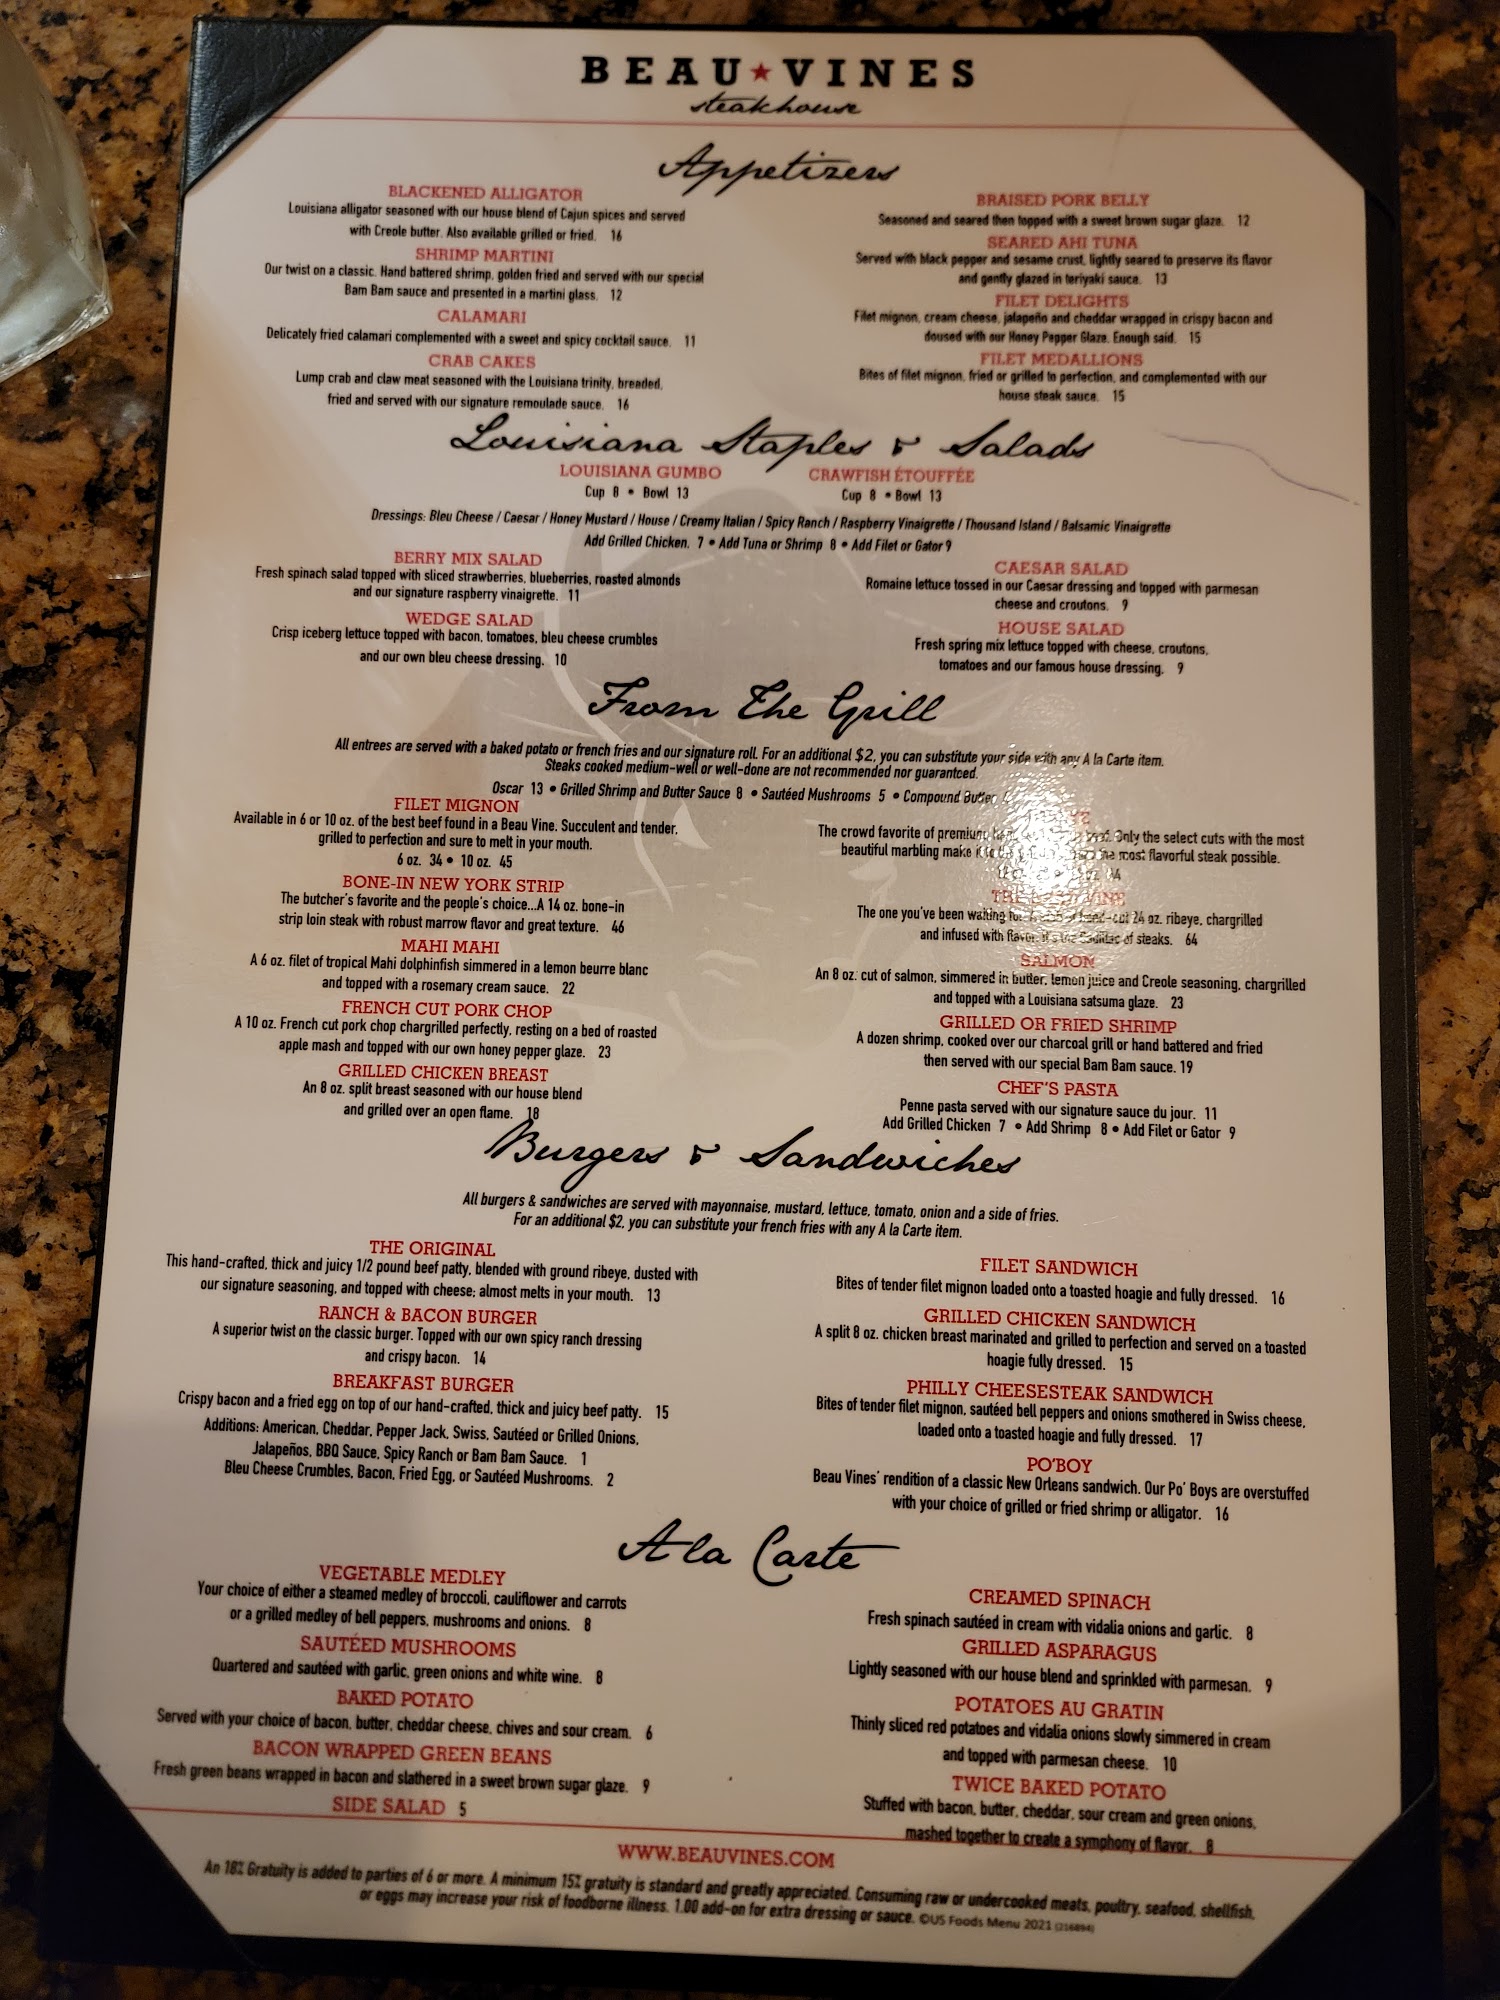 BEAU★VINES
steakhouse
Appetizers
BLACKENED ALLIGATOR
Louisiana alligator seasoned with our house blend of Cajun spices and served
with Creole butter. Also available grilled or fried. 16
SHRIMP MARTINI
Our twist on a classic. Hand battered shrimp, golden fried and served with our special
Bam Bam sauce and presented in a martini glass. 12
CALAMARI
Delicately fried calamari complemented with a sweet and spicy cocktail sauce. 11
CRAB CAKES
Lump crab and claw meat seasoned with the Louisiana trinity, breaded,
fried and served with our signature remoulade sauce. 16
BRAISED PORK BELLY
Seasoned and seared then topped with a sweet brown sugar glaze. 12
SEARED AHI TUNA
Served with black pepper and sesame crust, lightly seared to preserve its flavor
and gently glazed in teriyaki sauce. 13
FILET DELIGHTS
Filet mignon, cream cheese, jalapeño and cheddar wrapped in crispy bacon and
doused with our Honey Pepper Glaze. Enough said. 15
FILET MEDALLIONS
Bites of filet mignon, fried or grilled to perfection, and complemented with our
house steak sauce. 15
Louisiana Staples & Salads
LOUISIANA GUMBO
Cup 8 • Bowl 13
CRAWFISH ÉTOUFFÉE
Cup 8 • Bowl 13
Dressings: Bleu Cheese / Caesar / Honey Mustard / House / Creamy Italian / Spicy Ranch / Raspberry Vinaigrette / Thousand Island / Balsamic Vinaigrette
Add Grilled Chicken. 7 • Add Tuna or Shrimp 8 • Add Filet or Gator 9
BERRY MIX SALAD
Fresh spinach salad topped with sliced strawberries, blueberries, roasted almonds
and our signature raspberry vinaigrette. 11
WEDGE SALAD
Crisp iceberg lettuce topped with bacon, tomatoes, bleu cheese crumbles
and our own bleu cheese dressing. 10
CAESAR SALAD
Romaine lettuce tossed in our Caesar dressing and topped with parmesan
cheese and croutons. 9
HOUSE SALAD
Fresh spring mix lettuce topped with cheese, croutons,
tomatoes and our famous house dressing. 9
From The Grill
All entrees are served with a baked potato or french fries and our signature roll. For an additional $2, you can substitute your side with any A la Carte item.
Steaks cooked medium-well or well-done are not recommended nor guaranteed.
Oscar 13 • Grilled Shrimp and Butter Sauce 8 • Sautéed Mushrooms 5 • Compound Butter
FILET MIGNON
Available in 6 or 10 oz. of the best beef found in a Beau Vine. Succulent and tender,
grilled to perfection and sure to melt in your mouth.
6 oz. 34 • 10 oz. 45
BONE-IN NEW YORK STRIP
The butcher's favorite and the people's choice...A 14 oz. bone-in
strip loin steak with robust marrow flavor and great texture. 46
MAHI MAHI
A 6 oz. filet of tropical Mahi dolphinfish simmered in a lemon beurre blanc
and topped with a rosemary cream sauce. 22
FRENCH CUT PORK CHOP
A 10 oz. French cut pork chop chargrilled perfectly, resting on a bed of roasted
apple mash and topped with our own honey pepper glaze. 23
GRILLED CHICKEN BREAST
An 8 oz. split breast seasoned with our house blend
and grilled over an open flame. 18
The crowd favorite of premium Only the select cuts with the most
beautiful marbling make most flavorful steak possible.
THE VINE
The one you've been waiting 24 oz. ribeye, chargrilled
and infused with flavor. It's the Cadillac of steaks. 64
SALMON
An 8 oz. cut of salmon, simmered in butter, lemon juice and Creole seasoning, chargrilled
and topped with a Louisiana satsuma glaze. 23
GRILLED OR FRIED SHRIMP
A dozen shrimp, cooked over our charcoal grill or hand battered and fried
then served with our special Bam Bam sauce. 19
CHEF'S PASTA
Penne pasta served with our signature sauce du jour. 11
Add Grilled Chicken 7 • Add Shrimp 8 • Add Filet or Gator 9
Burgers & Sandwiches
All burgers & sandwiches are served with mayonnaise, mustard, lettuce, tomato, onion and a side of fries.
For an additional $2, you can substitute your french fries with any A la Carte item.
THE ORIGINAL
This hand-crafted, thick and juicy 1/2 pound beef patty, blended with ground ribeye, dusted with
our signature seasoning, and topped with cheese; almost melts in your mouth. 13
RANCH & BACON BURGER
A superior twist on the classic burger. Topped with our own spicy ranch dressing
and crispy bacon. 14
BREAKFAST BURGER
Crispy bacon and a fried egg on top of our hand-crafted, thick and juicy beef patty. 15
Additions: American, Cheddar, Pepper Jack, Swiss, Sautéed or Grilled Onions,
Jalapeños, BBQ Sauce, Spicy Ranch or Bam Bam Sauce. 1
Bleu Cheese Crumbles, Bacon, Fried Egg, or Sautéed Mushrooms. 2
FILET SANDWICH
Bites of tender filet mignon loaded onto a toasted hoagie and fully dressed. 16
GRILLED CHICKEN SANDWICH
A split 8 oz. chicken breast marinated and grilled to perfection and served on a toasted
hoagie fully dressed. 15
PHILLY CHEESESTEAK SANDWICH
Bites of tender filet mignon, sautéed bell peppers and onions smothered in Swiss cheese,
loaded onto a toasted hoagie and fully dressed. 17
PO'BOY
Beau Vines' rendition of a classic New Orleans sandwich. Our Po' Boys are overstuffed
with your choice of grilled or fried shrimp or alligator. 16
A la Carte
VEGETABLE MEDLEY
Your choice of either a steamed medley of broccoli, cauliflower and carrots
or a grilled medley of bell peppers, mushrooms and onions. 8
SAUTÉED MUSHROOMS
Quartered and sautéed with garlic, green onions and white wine. 8
BAKED POTATO
Served with your choice of bacon, butter, cheddar cheese, chives and sour cream. 6
BACON WRAPPED GREEN BEANS
Fresh green beans wrapped in bacon and slathered in a sweet brown sugar glaze. 9
SIDE SALAD 5
CREAMED SPINACH
Fresh spinach sautéed in cream with vidalia onions and garlic. 8
GRILLED ASPARAGUS
Lightly seasoned with our house blend and sprinkled with parmesan. 9
POTATOES AU GRATIN
Thinly sliced red potatoes and vidalia onions slowly simmered in cream
and topped with parmesan cheese. 10
TWICE BAKED POTATO
Stuffed with bacon, butter, cheddar, sour cream and green onions,
mashed together to create a symphony of flavor. 8
WWW.BEAUVINES.COM
An 18% Gratuity is added to parties of 6 or more. A minimum 15% gratuity is standard and greatly appreciated. Consuming raw or undercooked meats, poultry, seafood, shellfish,
or eggs may increase your risk of foodborne illness. 1.00 add-on for extra dressing or sauce. ©US Foods Menu 2021 (216894)